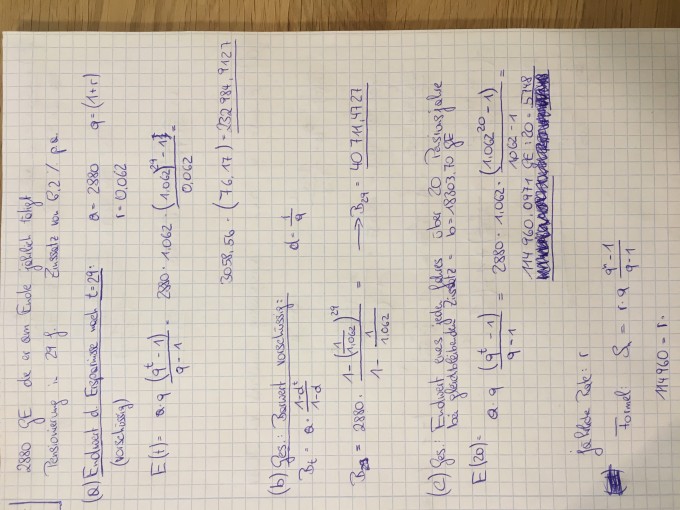 2880 GE die er am Ende jährlich tätigt
Pensionierung in 29 J. Zinssatz von 6.2 % p.a.
(a) Endwert d. Ersparnisse nach t=29: a = 2880 q = (1+r)
(vorschüssig) r = 0,062
E(t) = a·q (q^t - 1) / q - 1 = 2880 · 1,062 · (1,062^29 - 1) / 0,062 =
3058,56 · (76,17) = 232 984,9127
(b) Ges.: Barwert vorschüssig: d = 1/q
B_t = a · 1-d^t / 1-d
B_29 = 2880 · 1-(1/1,062)^29 / 1 - 1/1,062 → B_29 = 40 711,4727
(c) Ges.: Endwert eines jeden Jahres über 20 Pensionsjahre
bei gleichbleibenden Zinssatz = b = 18803,70 GE
E(20) = a·q (q^t - 1) / q - 1 = 2880 · 1,062 · (1,062^20 - 1) / 1062 - 1 =
114 960,0971 GE : 20 = 5748
jährliche Rate: r
Formel = r·q q^n - 1 / q - 1
114960 = r·